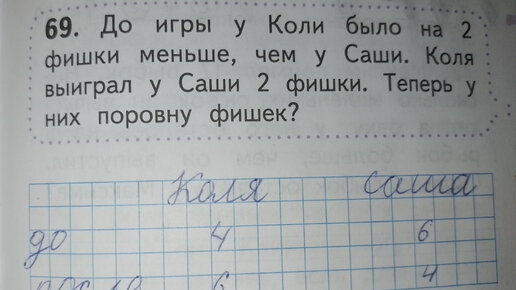 69. До игры у Коли было на 2
фишки меньше, чем у Саши. Коля
выиграл у Саши 2 фишки. Теперь у
них поровну фишек?
рыбок больше, чем он выпустил
Коля Саша
до 4 6
после 6 4